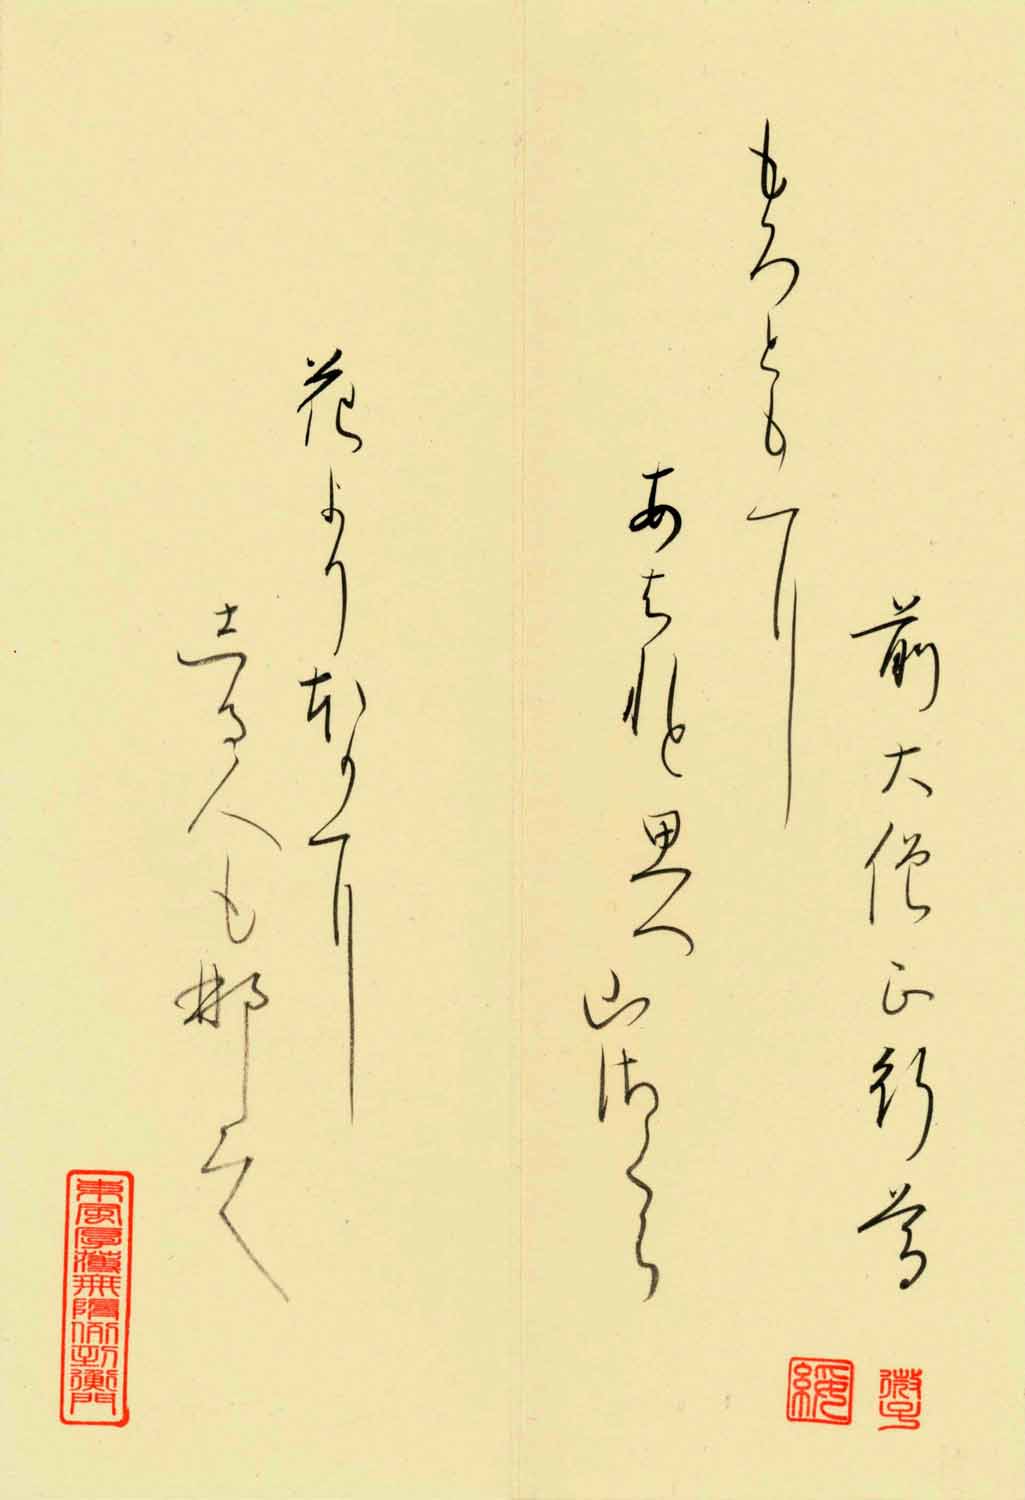 前大僧正行尊
もろともに
あはれと思へ山さくら
花よりほかに
志る人も那し